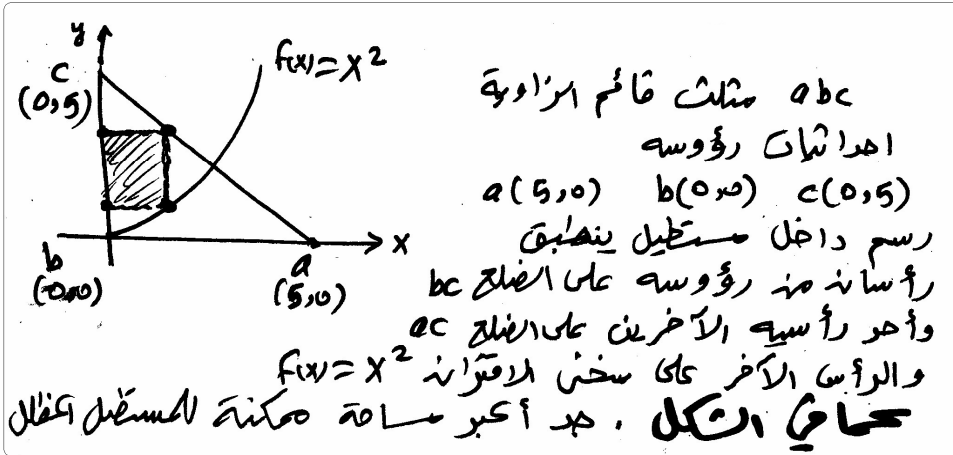 y
c
(0,5)
f(x) = x²
x
b
(0,0)
a
(5,0)
abc مثلث قائم الزاوية
احداثيات رؤوسه
a(5,0) b(0,0) c(0,5)
رسم داخل مستطيل ينطبق
رأسان من رؤوسه على الضلع bc
وأحد رأسيه الآخرين على الضلع ac
والرأس الآخر على منحنى الاقتران f(x) = x²
كما في الشكل . جد أكبر مساحة ممكنة للمستطيل المظلل